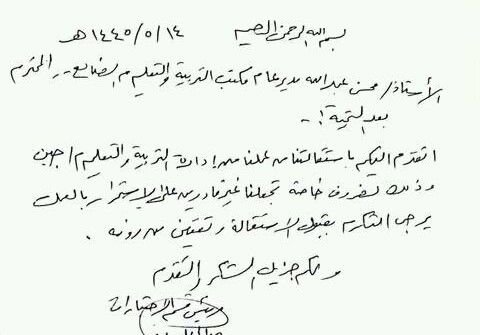 بسم الله الرحمن الرحيم ١٤٤٥/٥/١٤ هـ
الأستاذ/ محسن عبدالله مدير عام مكتب التربية والتعليم م الضالع -- المحترم
بعد التحية !-
اتقدم اليكم باستقالتنا من عملنا من إدارة التربية والتعليم م/جبن
وذلك لظروف خاصة تجعلنا غير قادرين على الاستمرار بالعمل
يرجى التكرم بقبول الاستقالة وتعيين من ترونه .
ولكم جزيل الشكر والتقدم
رئيس قسم الاختبارات